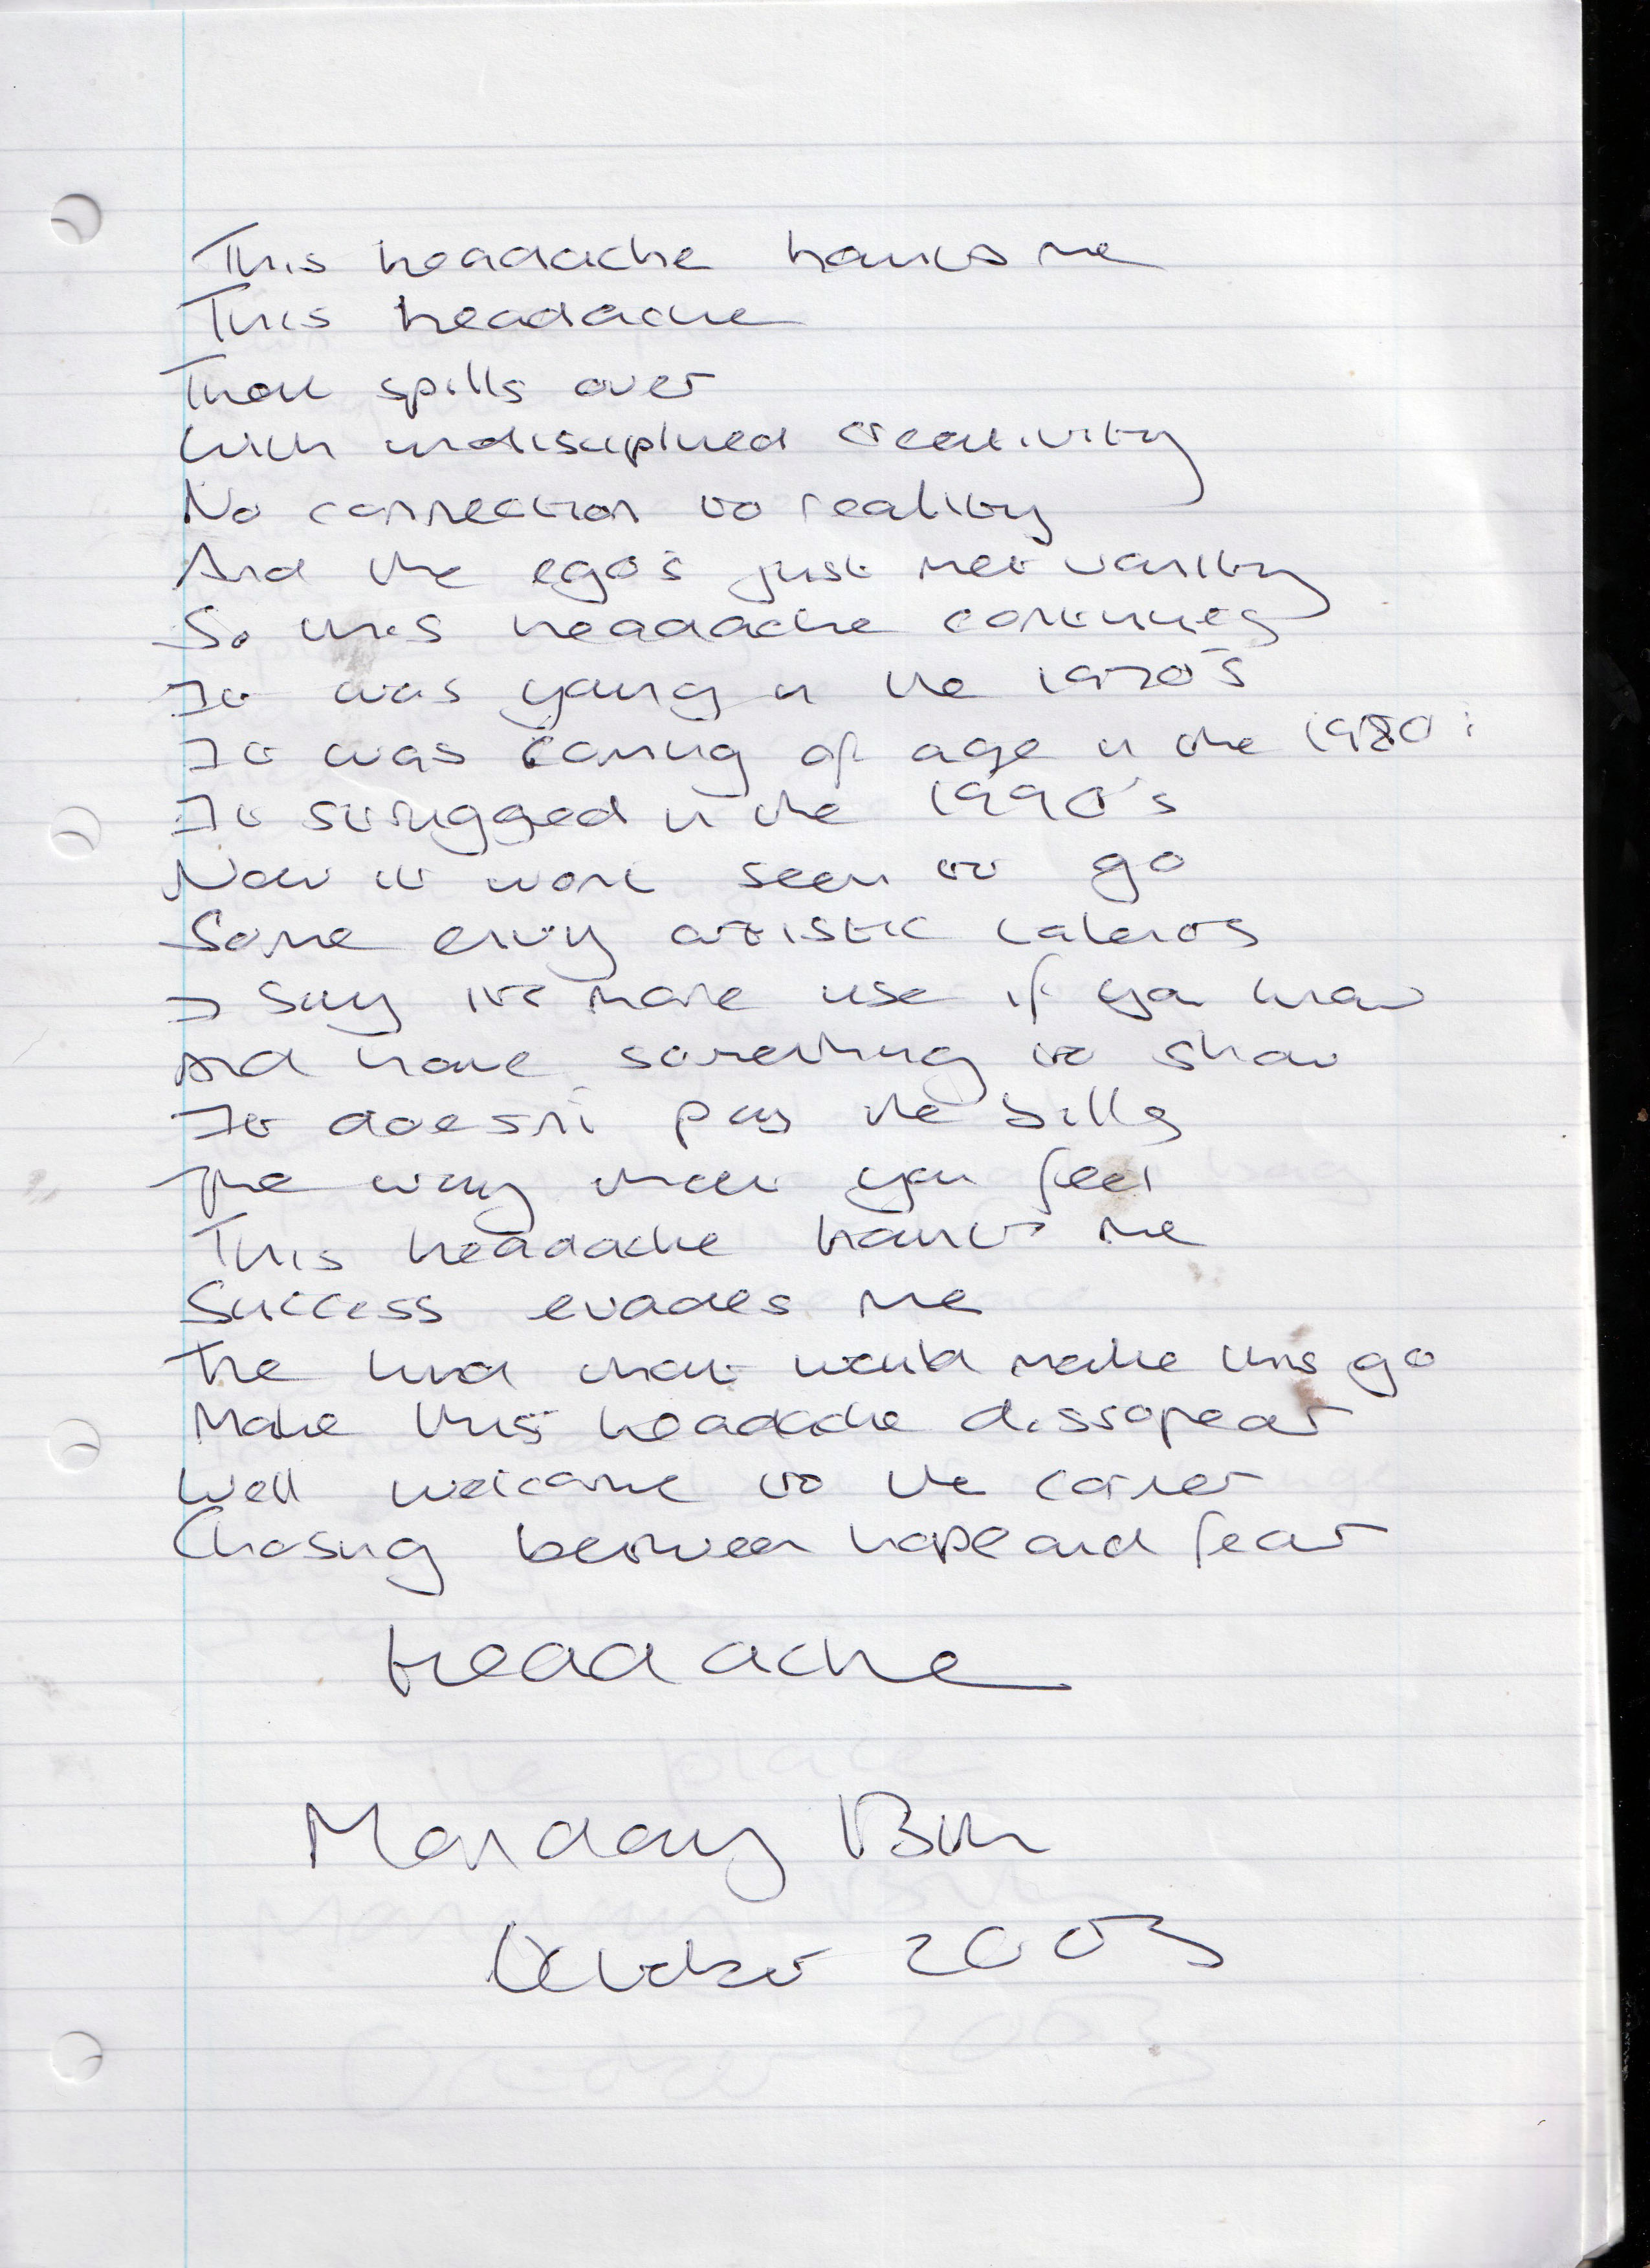 This headache haunts me
This headache
That spills over
With undisciplined creativity
No connection to reality
And the ego's just met vanity
So this headache continues
It was young in the 1970's
It was coming of age in the 1980's
It struggled in the 1990's
Now it wont seem to go
Some envy artistic talents
I say its more use if you know
And have something to show
It doesn't pay the bills
The way that you feel
This headache haunts me
Success evades me
The kind that would make this go
Make this headache dissapear
Well welcome to the corner
Chasing between hope and fear
Headache
Monday 13th
October 2003